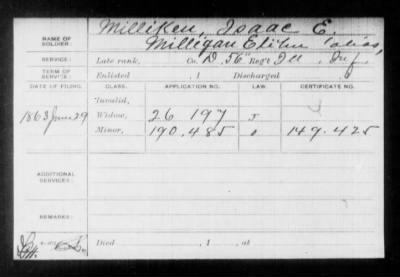 Milliken, Isaac E.
NAME OF SOLDIER: Milligan Elihu alias,
SERVICE: Late rank, Co. D. 56" Reg't Ill. Inf
TERM OF SERVICE: Enlisted , 1 Discharged , 1
DATE OF FILING. CLASS. APPLICATION NO. LAW. CERTIFICATE NO.
Invalid,
1863 June 29 Widow, 26 197
Minor, 190.485 149.425
ADDITIONAL SERVICES:
REMARKS:
Died , 1 , at